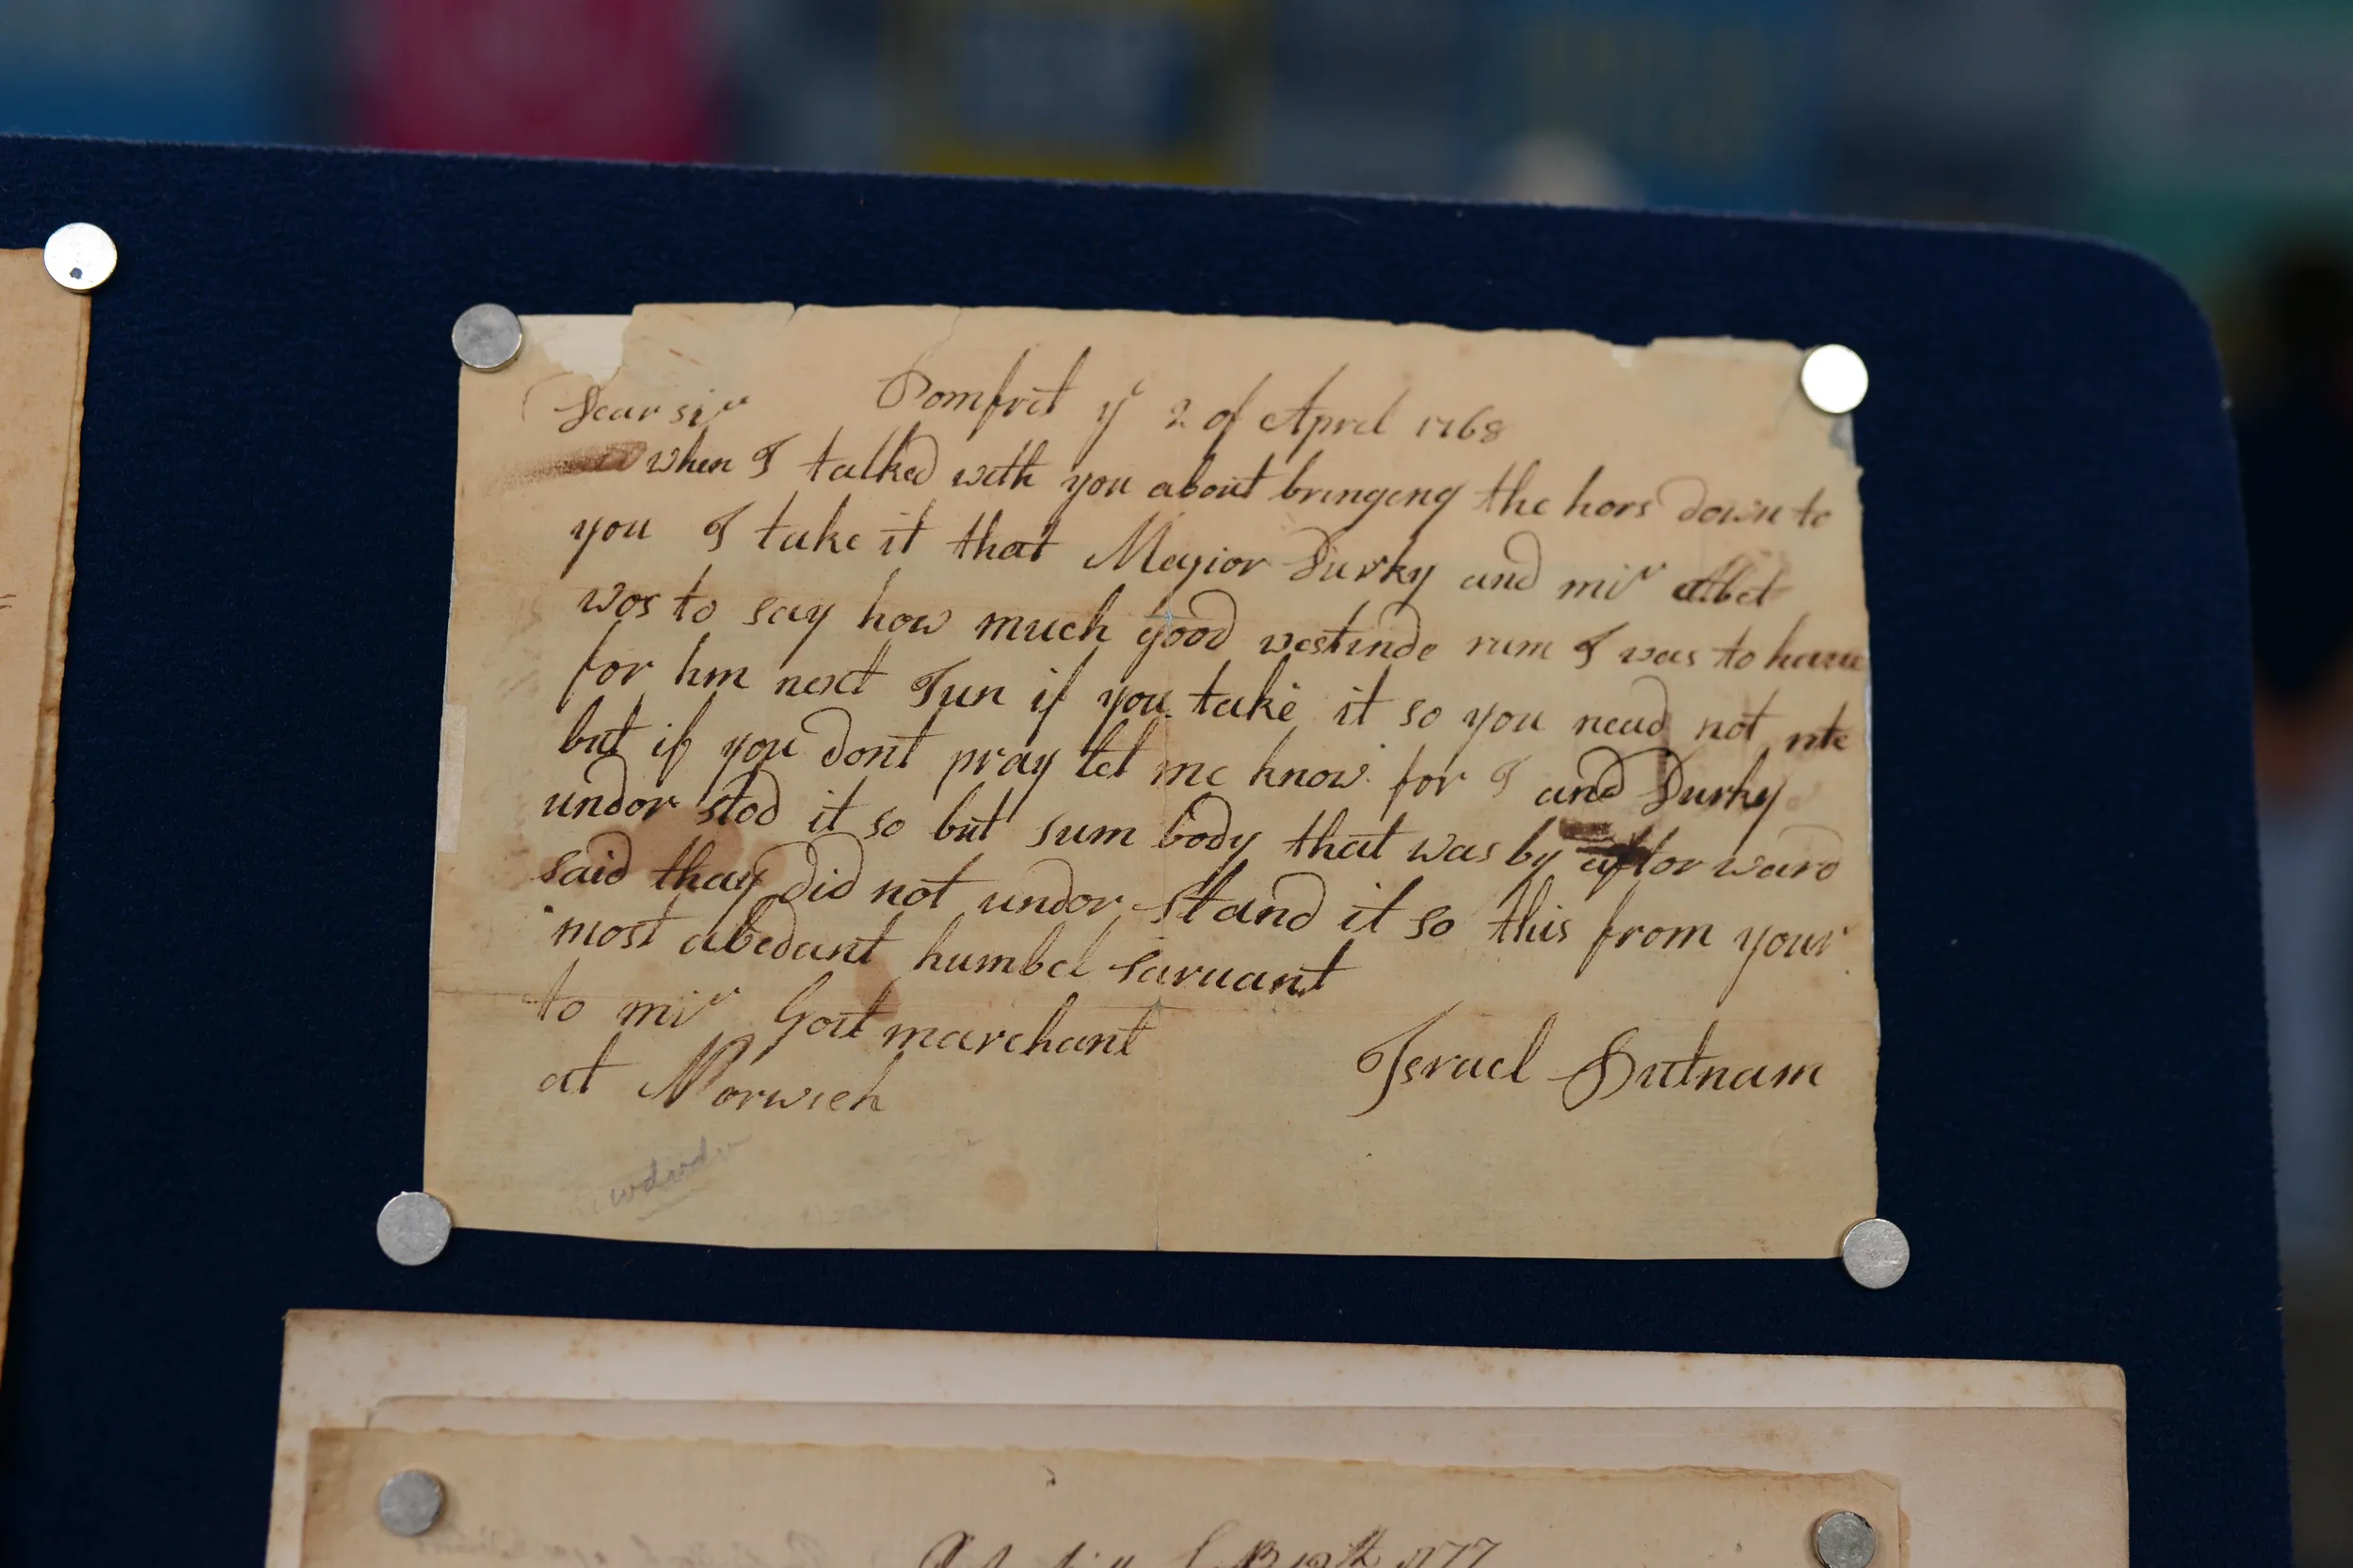 Dear sir Pomfrit ye 2 of April 1768
when I talked with you about bringeng the hors down to
you I take it that Magior Durky and mir Abel
wos to say how much good westinde rum I was to haue
for him next Jun if you take it so you nead not rite
but if you dont pray let me know for I and Durky
undor stod it so but sum body that was by aftor ward
said thay did not undor stand it so this from your
most abedant humbel saruant
to mir Gost marchant
at Norwich
Israel Putnam
1777